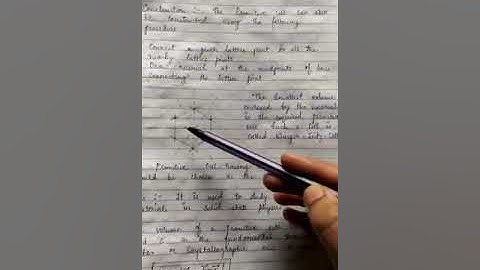 Construction :- the Primitive cell can also
be constructed using the following
procedure
Connect a given lattice point to all the
nearby lattice points
Draw normal at the midpoints of line
connecting the lattice point
"The smallest volume
enclosed by the normal
is the required primitive
cell. Such a cell is
called Wigner-Seitz-Cell
Primitive Cell having
should be chosen as the
:- It is used to study
materials in solid state physics
volume of a primitive cell
and c are the fundamental
or crystallographic